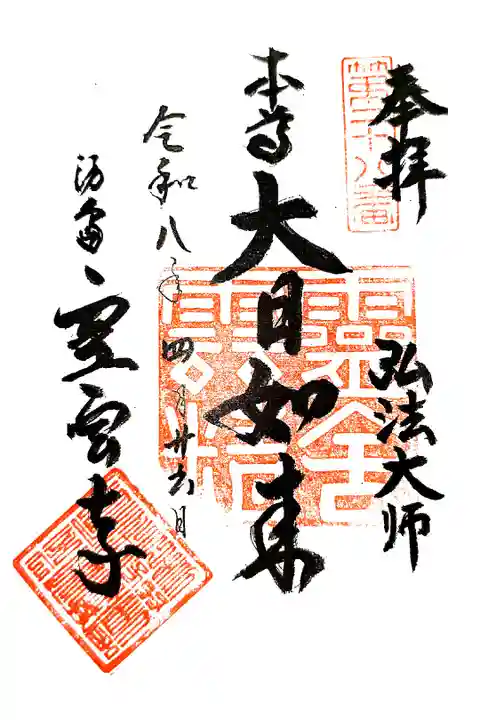 奉拝
第二十八番
弘法大師
本尊
大日如来
令和八年四月廿六日
湯島
霊雲寺